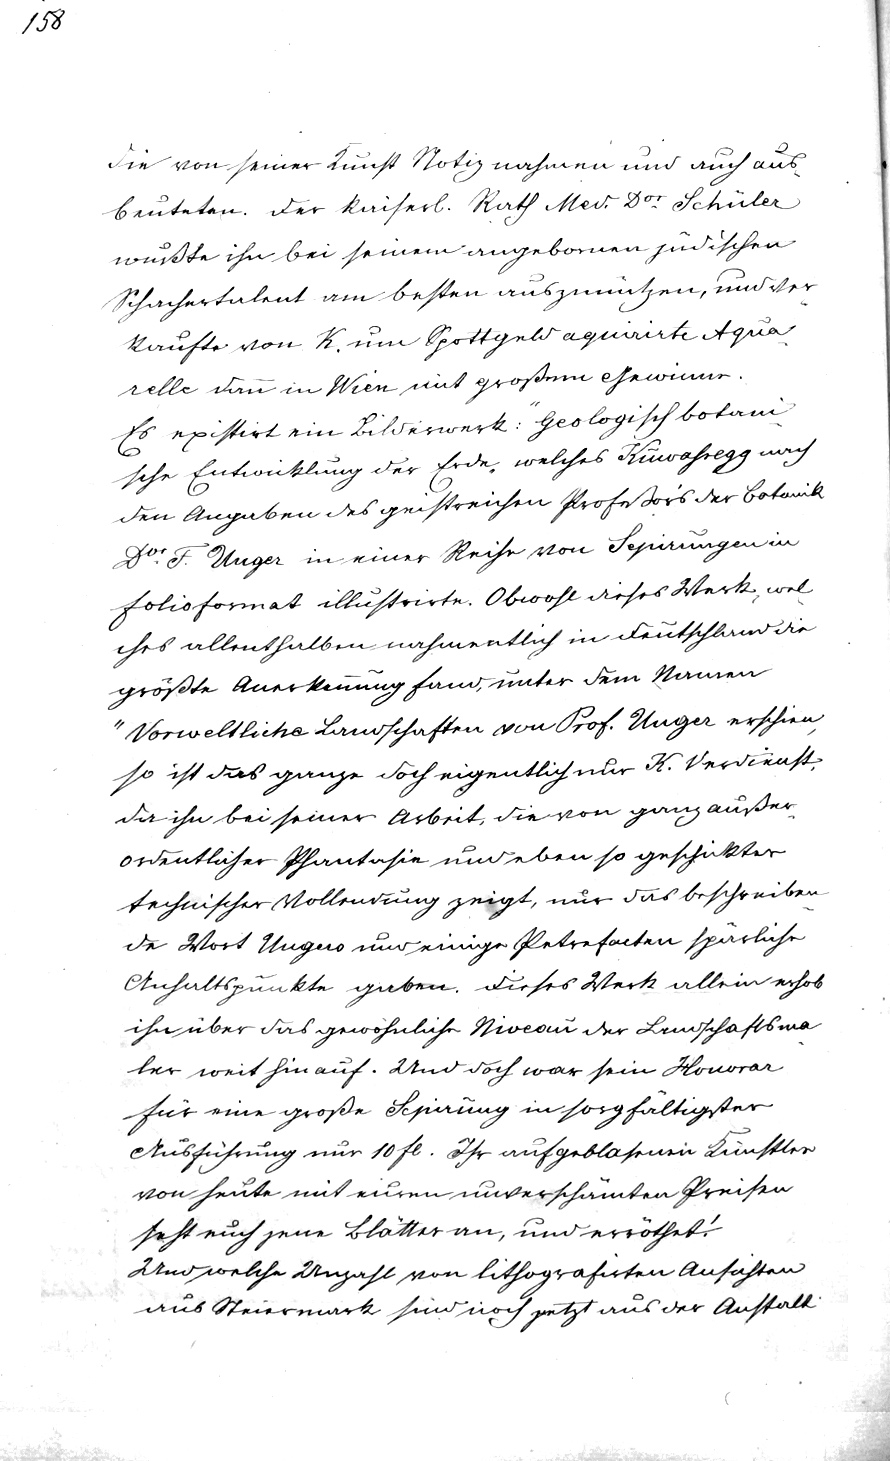 158
die von seiner Kunst Notiz nahmen und auch aus-
beuteten. Der kaiserl. Rath Med. Dor. Schüler
wußte ihn bei seinem angebornen jüdischen
Schachertalent am besten auszunützen, und ver-
kaufte von K. um Spottgeld aquirirte Aqua-
relle dan̄ in Wien mit großem Gewinne.
Es existirt ein Bilderwerk: "Geologisch botani-
sche Entwicklung der Erde" welches Kuwasegg nach
den Angaben des geistreichen Profeßors der Botanik
Dor. F. Unger in einer Reihe von Sepirungen in
Folioformat illustrirte. Obwohl dieses Werk, wel-
ches allenthalben nahmentlich in Deutschland die
größte Anerken̄ung fand, unter dem Namen
"Vorweltliche Landschaften von Prof. Unger erschien,
so ist das ganze doch eigentlich nur K. Verdienst,
da ihn bei seiner Arbeit, die von ganz außer-
ordentlicher Phantasie und eben so geschikter
technischer Vollendung zeigt, nur das beschreiben-
de Wort Ungers und einige Petrefacten spärliche
Anhaltspunkte gaben. Dieses Werk allein erhob
ihn über das gewöhnliche Niveau der Landschaftsma-
ler weit hinauf. Und doch war sein Honorar
für eine große Sepirung in sorgfältigster
Ausführung nur 10 fl. Ihr aufgeblasenen Künstler
von heute mit euren unverschämten Preisen
seht euch jene Blätter an, und erröthet!
Und welche Unzahl von lithografirten Ansichten
aus Steiermark sind noch jetzt aus der Anstalt